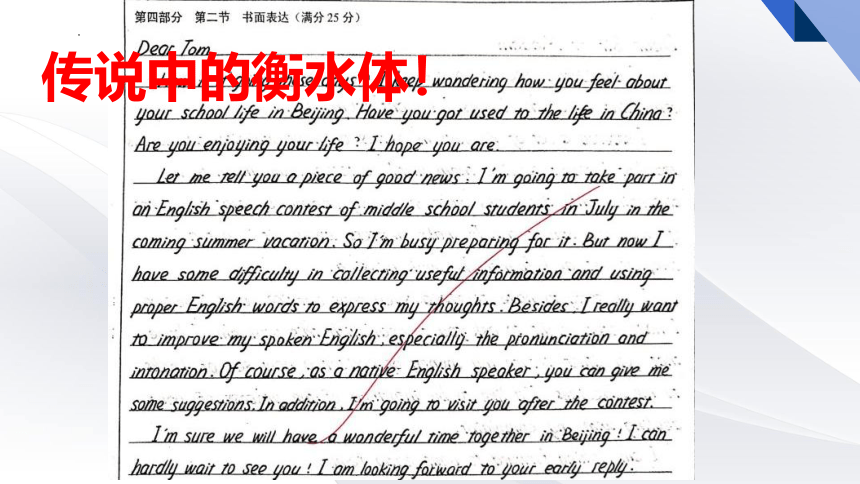 第四部分 第二节 书面表达（满分 25 分）
Dear Tom
传说中的衡水体！
these days? I keep wondering how you feel about
your school life in Beijing. Have you got used to the life in China?
Are you enjoying your life? I hope you are.
Let me tell you a piece of good news. I'm going to take part in
an English speech contest of middle school students in July in the
coming summer vacation. So I'm busy preparing for it. But now I
have some difficulty in collecting useful information and using
proper English words to express my thoughts. Besides, I really want
to improve my spoken English, especially the pronunciation and
intonation. Of course, as a native English speaker, you can give me
some suggestions. In addition, I'm going to visit you after the contest.
I'm sure we will have a wonderful time together in Beijing! I can
hardly wait to see you! I am looking forward to your early reply.